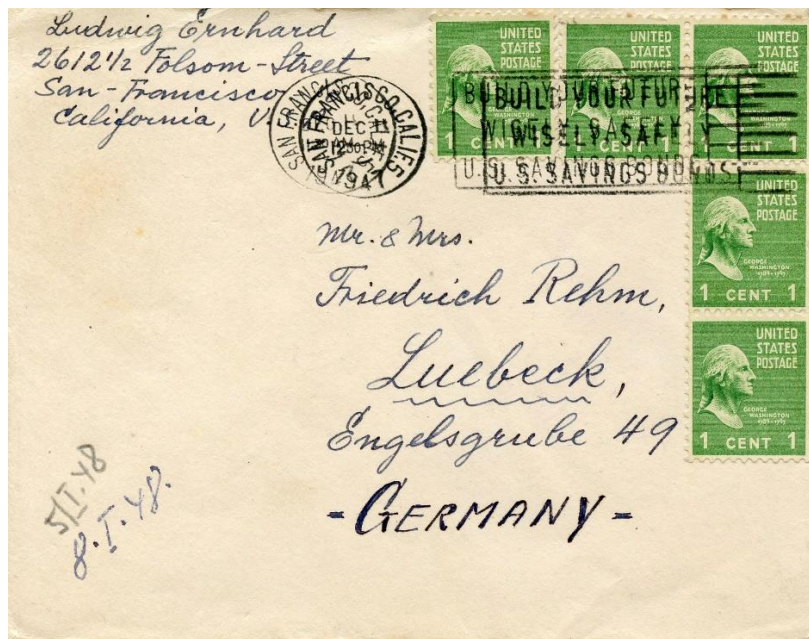 Ludwig Ernhard
2612 1/2 Folsom-Street
San-Francisco
California, U.
SAN FRANCISCO, CALIF. 5
DEC 11
12 30 PM
1947
BUILD YOUR FUTURE
WISELY SAFELY
U.S. SAVINGS BONDS
UNITED
STATES
POSTAGE
1 CENT 1
UNITED
STATES
POSTAGE
1 CENT 1
UNITED
STATES
POSTAGE
1 CENT 1
UNITED
STATES
POSTAGE
GEORGE
WASHINGTON
1 CENT 1
UNITED
STATES
POSTAGE
GEORGE
WASHINGTON
1 CENT 1
Mr. & Mrs.
Friedrich Rehm,
Luebeck,
Engelsgrube 49
- GERMANY -
5/I.48
8.I.48.